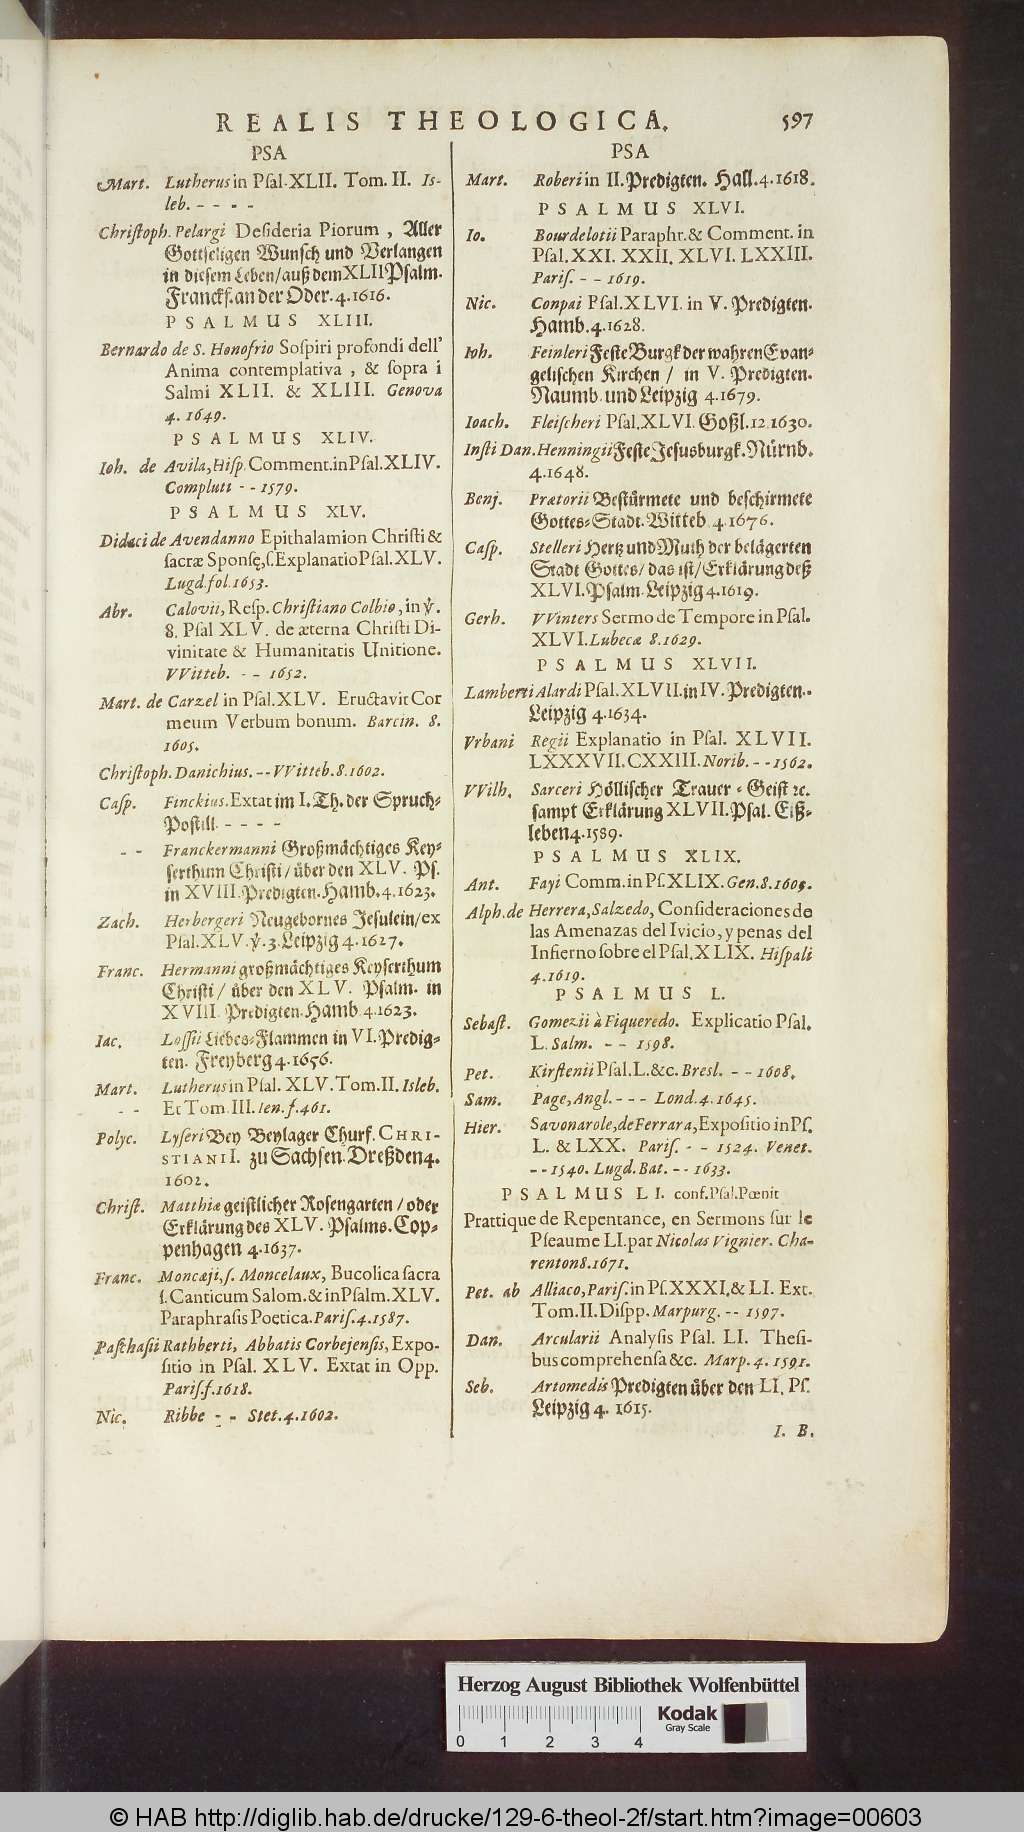 REALIS THEOLOGICA. 597
PSA
Mart. Lutherus in Pſal. XLII. Tom. II. Is-
leb. - - - -
Chriſtoph. Pelargi Deſideria Piorum, Aller
Gottſeligen Wunſch und Verlangen
in dieſem Leben/ auß dem XLII Pſalm.
Franckf. an der Oder. 4. 1616.
PSALMUS XLIII.
Bernardo de S. Honofrio Soſpiri profondi dell'
Anima contemplativa, & ſopra i
Salmi XLII. & XLIII. Genova
4. 1649.
PSALMUS XLIV.
Ioh. de Avila, Hiſp. Comment. in Pſal. XLIV.
Compluti - - 1579.
PSALMUS XLV.
Didaci de Avendanno Epithalamion Chriſti &
ſacræ Sponſę, ſ. Explanatio Pſal. XLV.
Lugd. fol. 1653.
Abr. Calovii, Reſp. Chriſtiano Colbio, in ℣.
8. Pſal XLV. de æterna Chriſti Di-
vinitate & Humanitatis Unitione.
VVitteb. - - 1652.
Mart. de Carzel in Pſal. XLV. Eructavit Cor
meum Verbum bonum. Barcin. 8.
1605.
Chriſtoph. Danichius. - - VVitteb. 8. 1602.
Caſp. Finckius. Extat im I. Th. der Spruch-
Poſtill. - - - -
- - Franckermanni Großmächtiges Key-
ſerthum Chriſti/ über den XLV. Pſ.
in XVIII. Predigten. Hamb. 4. 1623.
Zach. Herbergeri Neugebornes Jeſulein/ ex
Pſal. XLV. ℣. 3. Leipzig 4. 1627.
Franc. Hermanni großmächtiges Keyſerthum
Chriſti/ über den XLV. Pſalm. in
XVIII. Predigten. Hamb. 4. 1623.
Iac. Loſſii Liebes-Flammen in VI. Predig-
ten. Freyberg 4. 1656.
Mart. Lutherus in Pſal. XLV. Tom. II. Isleb.
- - Et Tom. III. Ien. f. 461.
Polyc. Lyſeri Bey Beylager Churf. CHRI-
STIANI I. zu Sachſen. Dreßden 4.
1602.
Chriſt. Matthiæ geiſtlicher Roſengarten/ oder
Erklärung des XLV. Pſalms. Cop-
penhagen 4. 1637.
Franc. Moncæji, ſ. Moncelaux, Bucolica ſacra
ſ. Canticum Salom. & in Pſalm. XLV.
Paraphraſis Poetica. Pariſ. 4. 1587.
Paſchaſii Rathberti, Abbatis Corbejenſis, Expo-
ſitio in Pſal. XLV. Extat in Opp.
Pariſ. f. 1618.
Nic. Ribbe - - Stet. 4. 1602.
PSA
Mart. Roberi in II. Predigten. Hall. 4. 1618.
PSALMUS XLVI.
Io. Bourdelotii Paraphr. & Comment. in
Pſal. XXI. XXII. XLVI. LXXIII.
Pariſ. - - 1619.
Nic. Conpai Pſal. XLVI. in V. Predigten.
Hamb. 4. 1628.
Ioh. Feinleri Feſte Burgk der wahren Evan-
geliſchen Kirchen/ in V. Predigten.
Naumb. und Leipzig 4. 1679.
Ioach. Fleiſcheri Pſal. XLVI. Goßl. 12. 1630.
Inſti Dan. Henningii Feſte Jeſusburgk. Nürnb.
4. 1648.
Benj. Prætorii Beſtürmete und beſchirmete
Gottes-Stadt. Witteb. 4. 1676.
Caſp. Stelleri Hertz und Muth der belägerten
Stadt Gottes/ das iſt/ Erklärung deß
XLVI. Pſalm. Leipzig 4. 1619.
Gerh. VVinters Sermo de Tempore in Pſal.
XLVI. Lubecæ 8. 1629.
PSALMUS XLVII.
Lamberti Alardi Pſal. XLVII. in IV. Predigten.
Leipzig 4. 1634.
Vrbani Regii Explanatio in Pſal. XLVII.
LXXXVII. CXXIII. Norib. - - 1562.
VVilh. Sarceri Höllischer Trauer-Geiſt ꝛc.
ſampt Erklärung XLVII. Pſal. Eiß-
leben 4. 1589.
PSALMUS XLIX.
Ant. Fayi Comm. in Pſ. XLIX. Gen. 8. 1605.
Alph. de Herrera, Salzedo, Conſideraciones de
las Amenazas del Ivicio, y penas del
Infierno ſobre el Pſal. XLIX. Hiſpali
4. 1619.
PSALMUS L.
Sebaſt. Gomezii à Figueredo. Explicatio Pſal.
L. Salm. - - 1598.
Pet. Kirſtenii Pſal. L. &c. Bresl. - - 1608.
Sam. Page, Angl. - - - Lond. 4. 1645.
Hier. Savonarole, de Ferrara, Expoſitio in Pſ.
L. & LXX. Pariſ. - - 1524. Venet.
- - 1540. Lugd. Bat. - - 1633.
PSALMUS LI. conf. Pſal. Pœnit
Prattique de Repentance, en Sermons ſur le
Pſeaume LI. par Nicolas Vignier. Cha-
renton 8. 1671.
Pet. ab Alliaco, Pariſ. in Pſ. XXXI. & LI. Ext.
Tom. II. Diſpp. Marpurg. - - 1597.
Dan. Arcularii Analyſis Pſal. LI. Theſi-
bus comprehenſa &c. Marp. 4. 1591.
Seb. Artomedis Predigten über den LI. Pſ.
Leipzig 4. 1615.
I. B.
Herzog August Bibliothek Wolfenbüttel
Kodak
Gray Scale
0 1 2 3 4
© HAB http://diglib.hab.de/drucke/129-6-theol-2f/start.htm?image=00603